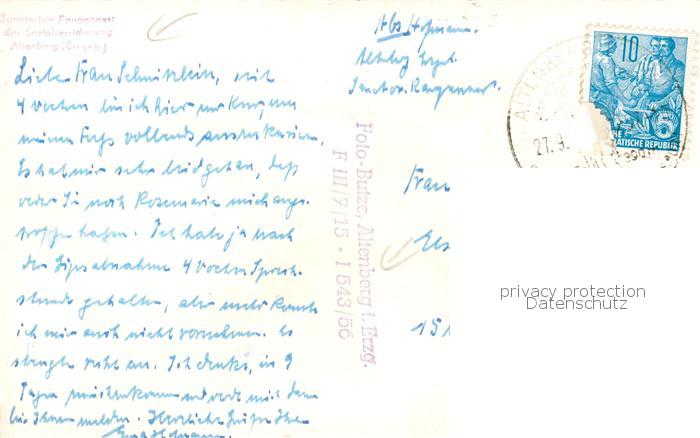 Sanatorium Raupennest
der Sozialversicherung
Altenberg (Erzgeb.)
Liebe Frau Schnitzlein, seit
4 Wochen bin ich hier zur Kur, um
meinen Fuß vollends auszukurieren.
Es hat mir sehr leidgetan, daß
weder Sie noch Rosemarie mich ange-
troffen haben. Ich habe ja nach
der Gipsabnahme 4 Wochen Sprech-
stunde gehalten, aber mehr konnte
ich mir auch nicht vornehmen. Es
strengte sehr an. Ich denke, in 9
Tagen
bei Ihnen melden. Herzliche Grüße Ihre
Hofmann.
Abs. Hofmann.
Altenbg Erzgeb.
Sanator. Raupennest.
Foto-Butze, Altenberg i. Erzg.
F III 7/15 - I 543/56
10
5
DEUTSCHE
DEMOKRATISCHE REPUBLIK
ALTENBE
27.9.
Frau
151
privacy protection
Datenschutz